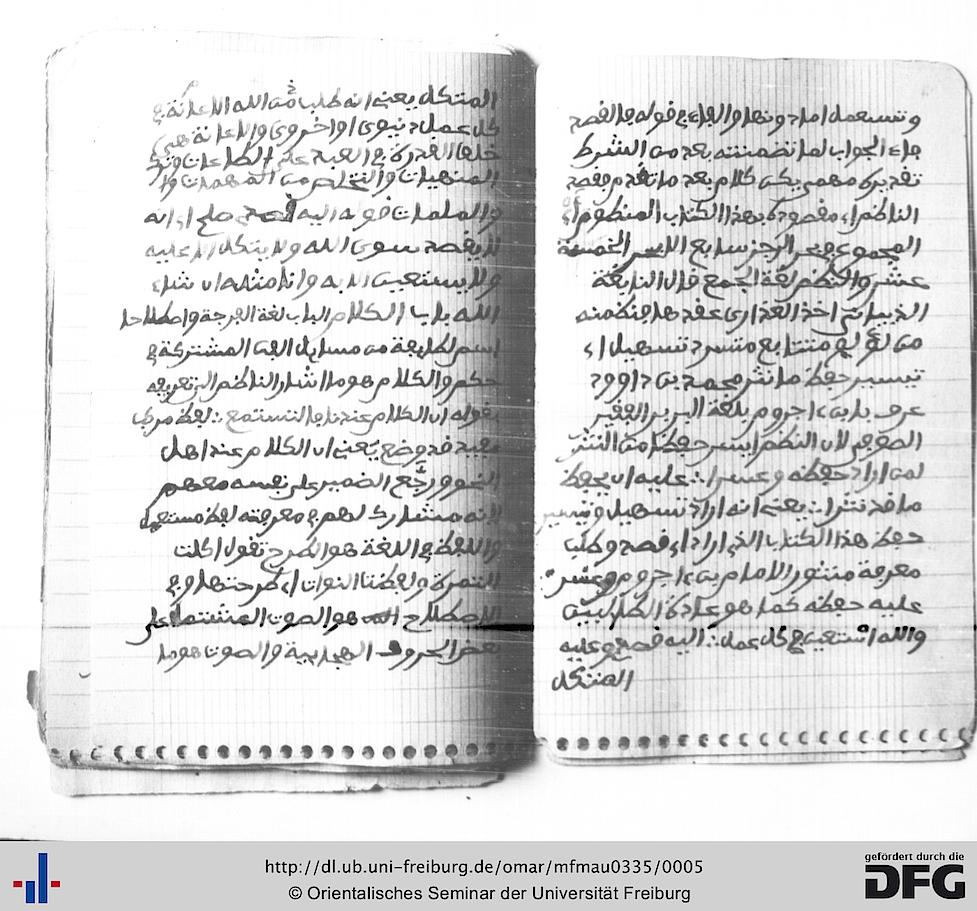 وتستعمل اما دونها والفاء في قوله فالقصد
فاء الجواب لما تضمنته بعد من الشرط
تقديره مهمى يكن كلام بعد ما تقدم فقصد
الناظم اي مقصوده بهذا الكتاب المنظوم اي
المجموع في بحر الرجز سابع الابحر الخمسة
عشر والنظم لغة الجمع قال النابغة
الذبياني اخذ العذارى عقدها فنظمنه
من لؤلؤ متتابع متسرد تسهيل اي
تيسير حفظ ما نثر محمد بن داوود
عرف بابن ءاجروم بلغة البربر الفقير
الصوفي لان النظم ايسر حفظا من النثر
لمن اراد حفظه وعسرا ∴ عليه ان يحفظ
ما قد نثرا ∴ يعني انه اراد تسهيل وتيسير
حفظ هذا الكتاب الذي اراد اي قصد وطلب
معرفة منثور الامام بن ءاجروم وعسر
عليه حفظه كما هو عادة الطالبين
والله استعين في كل عمل ∴ اليه قصدي وعليه
المتكل
المتكل يعني انه طلب من الله الاعانة في
كل عمل دنيوي او اخروي والاعانة هي
خلق القدرة في العبد على الطاعات وترك
المنهيات والتخلص من المهمات و
والملمات قوله اليه قصدي اي انه
لا يقصد سوى الله ولا يتكل الا عليه
ولا يستعين الا به وانا مثله ان شاء
الله باب الكلام الباب لغة الفرجة واصطلاحا
اسم لطايفة من مسايل الفن المشتركة في
حكم والكلام هو ما اشار الناظم الى تعريفه
بقوله ان الكلام عندنا فلتستمع ∴ لفظ مركب
مفيد قد وضع يعني ان الكلام عند اهل
النحو ورجع الضمير على نفسه معهم
لانه مشارك لهم في معرفته لفظ مستعمل
واللفظ في اللغة هو الطرح تقول اكلت
التمرة ولفظت النوات اي طرحتها وفي
الاصطلاح هو الصوت المشتمل على
بعض الحروف الهجاىية والصوت هو ما
http://dl.ub.uni-freiburg.de/omar/mfmau0335/0005
© Orientalisches Seminar der Universität Freiburg
gefördert durch die
DFG